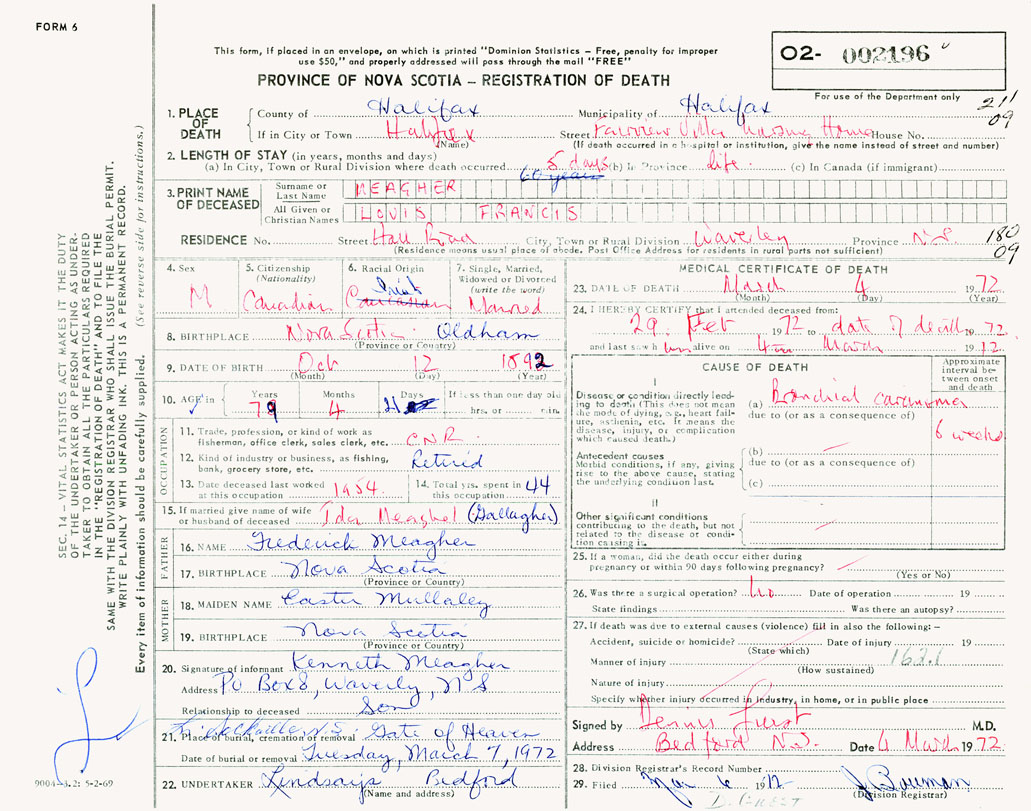 FORM 6
This form, if placed in an envelope, on which is printed "Dominion Statistics — Free, penalty for improper
use $50," and properly addressed will pass through the mail "FREE"
PROVINCE OF NOVA SCOTIA — REGISTRATION OF DEATH
O2- 002196
For use of the Department only
211
09
1. PLACE OF DEATH
County of Halifax Municipality of Halifax
If in City or Town Halifax Street Fairview Villa Nursing Home House No.
(Name) (If death occurred in a hospital or institution, give the name instead of street and number)
2. LENGTH OF STAY (in years, months and days)
(a) In City, Town or Rural Division where death occurred 5 days (b) In Province life (c) In Canada (if immigrant)
60 years
3. PRINT NAME OF DECEASED
Surname or Last Name MEAGHER
All Given or Christian Names LOUIS FRANCIS
RESIDENCE No. Street Hall Road City, Town or Rural Division Waverley Province N.S.
(Residence means usual place of abode. Post Office Address for residents in rural parts not sufficient)
180
09
4. Sex M
5. Citizenship (Nationality) Canadian
6. Racial Origin Irish Caucasian
7. Single, Married, Widowed or Divorced (write the word) Married
8. BIRTHPLACE Nova Scotia Oldham
(Province or Country)
9. DATE OF BIRTH Oct 12 1892
(Month) (Day) (Year)
10. AGE in Years 79 Months 4 Days If less than one day old hrs. or min.
OCCUPATION
11. Trade, profession, or kind of work as fisherman, office clerk, sales clerk, etc. CNR
12. Kind of industry or business, as fishing, bank, grocery store, etc. Retired
13. Date deceased last worked at this occupation 1954
14. Total yrs. spent in this occupation 44
15. If married give name of wife or husband of deceased Ida Meagher (Gallagher)
FATHER
16. NAME Frederick Meagher
17. BIRTHPLACE Nova Scotia
(Province or Country)
MOTHER
18. MAIDEN NAME Mullaley
19. BIRTHPLACE Nova Scotia
(Province or Country)
20. Signature of informant Kenneth Meagher
Address PO Box 8, Waverly, N S
Relationship to deceased Son
L. Sackville N.S.
21. Place of burial, cremation or removal Gate of Heaven
Date of burial or removal Tuesday, March 7, 1972
22. UNDERTAKER Lindsays Bedford
(Name and address)
MEDICAL CERTIFICATE OF DEATH
23. DATE OF DEATH March 4 1972
(Month) (Day) (Year)
24. I HEREBY CERTIFY that I attended deceased from:
29 Feb 1972 to date of death 1972
and last saw him alive on 4th March 1972
CAUSE OF DEATH
Approximate interval between onset and death
I
Disease or condition directly leading to death (This does not mean the mode of dying, e.g., heart failure, asthenia, etc. It means the disease, injury, or complication which caused death.)
(a) Bronchial carcinoma
due to (or as a consequence of)
6 weeks
Antecedent causes
Morbid conditions, if any, giving rise to the above cause, stating the underlying condition last.
(b)
due to (or as a consequence of)
(c)
II
Other significant conditions contributing to the death, but not related to the disease or condition causing it.
25. If a woman, did the death occur either during pregnancy or within 90 days following pregnancy?
(Yes or No)
26. Was there a surgical operation? No Date of operation 19
State findings Was there an autopsy?
27. If death was due to external causes (violence) fill in also the following:—
Accident, suicide or homicide? Date of injury 19
(State which)
Manner of injury 162.1
(How sustained)
Nature of injury
Specify whether injury occurred in industry, in home, or in public place
Signed by Dennis Furst M.D.
Address Bedford N.S. Date 4 March 1972
28. Division Registrar's Record Number
29. Filed Mar 6 1972 J. Bauman
(Division Registrar)
SEC. 14 — VITAL STATISTICS ACT MAKES IT THE DUTY
OF THE UNDERTAKER OR PERSON ACTING AS UNDER-
TAKER TO OBTAIN ALL THE PARTICULARS REQUIRED
IN THE "REGISTRATION OF DEATH" AND TO FILE THE
SAME WITH THE DIVISION REGISTRAR WHO SHALL ISSUE THE BURIAL PERMIT.
WRITE PLAINLY WITH UNFADING INK. THIS IS A PERMANENT RECORD.
Every item of information should be carefully supplied. (See reverse side for instructions.)
9004-3.2: 5-2-69